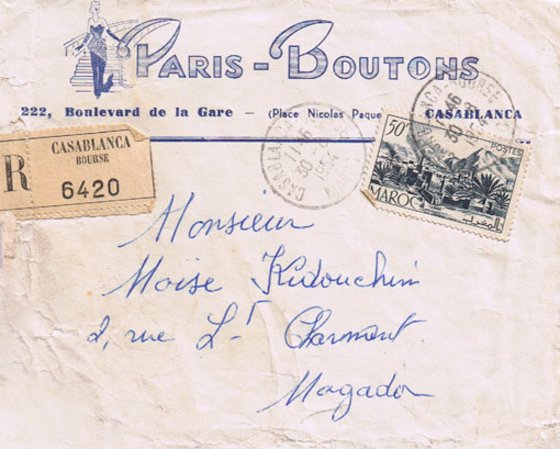 PARIS - BOUTONS
222, Boulevard de la Gare - (Place Nicolas Paque CASABLANCA
R
CASABLANCA
BOURSE
6420
CASABLANCA
11-46
30 -8
1954
CASABLANCA-BOURSE
11-46
30 -8
1954
50F
POSTES
MAROC
المغرب
Monsieur
Moïse Kidouchim
2, rue Lt Charmant
Mogador